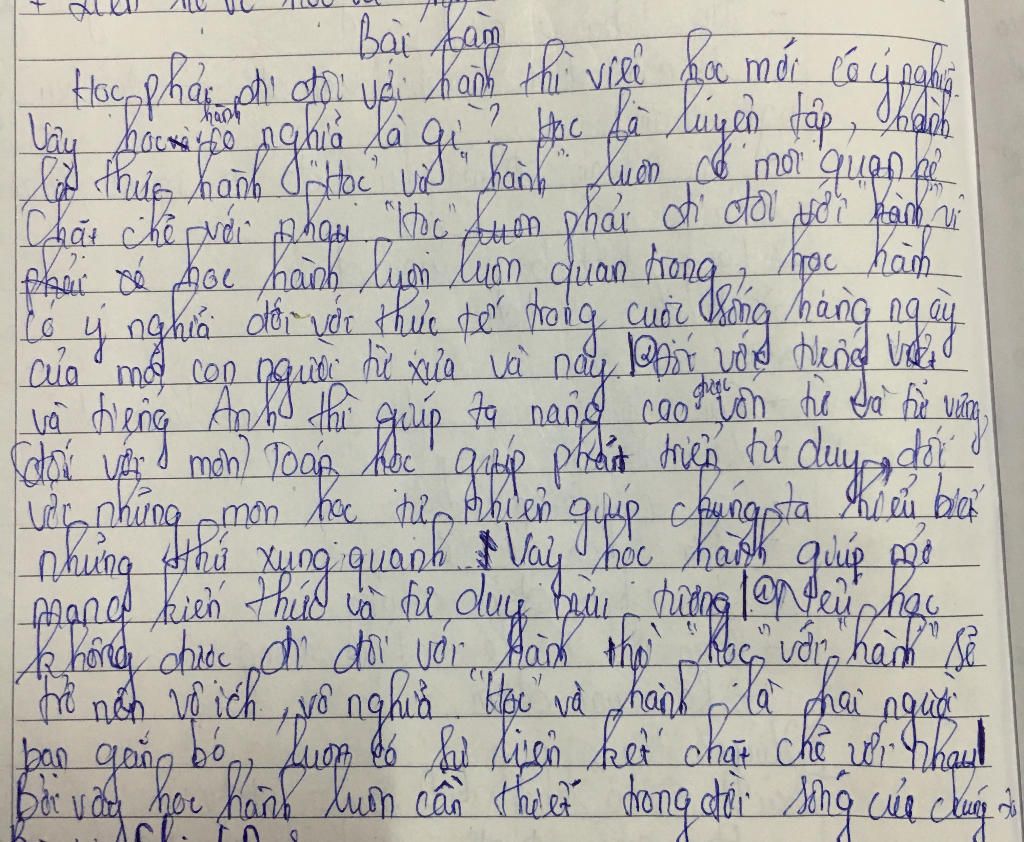 Bài làm
Học phải đi đôi với hành thì việc học mới có ý nghĩa.
Vậy học hành có nghĩa là gì? Học là luyện tập, hành
là thực hành "Học" và "hành" luôn có mối quan hệ
Chặt chẽ với nhau. "Học" luôn phải đi đôi với "hành" vì
phải có học hành luôn luôn quan trọng, học hành
có ý nghĩa đối với thực tế trong cuộc sống hàng ngày
của mỗi con người từ xưa và nay. Đối với tiếng Việt
và tiếng Anh thì giúp ta nâng cao được vốn từ và từ vựng,
(đối với môn) Toán học giúp phát triển tư duy, đối
với những môn học tự nhiên giúp chúng ta hiểu biết
những thứ xung quanh. Vậy học hành giúp mở
mang kiến thức và tư duy trừu tượng. Nếu học
không được đi đôi với hành thì "học" với "hành" sẽ
trở nên vô ích, vô nghĩa "Học" và hành là hai người
bạn gắn bó, luôn có sự liên kết chặt chẽ với nhau
Bởi vậy học hành luôn cần thiết trong đời sống của chúng ta